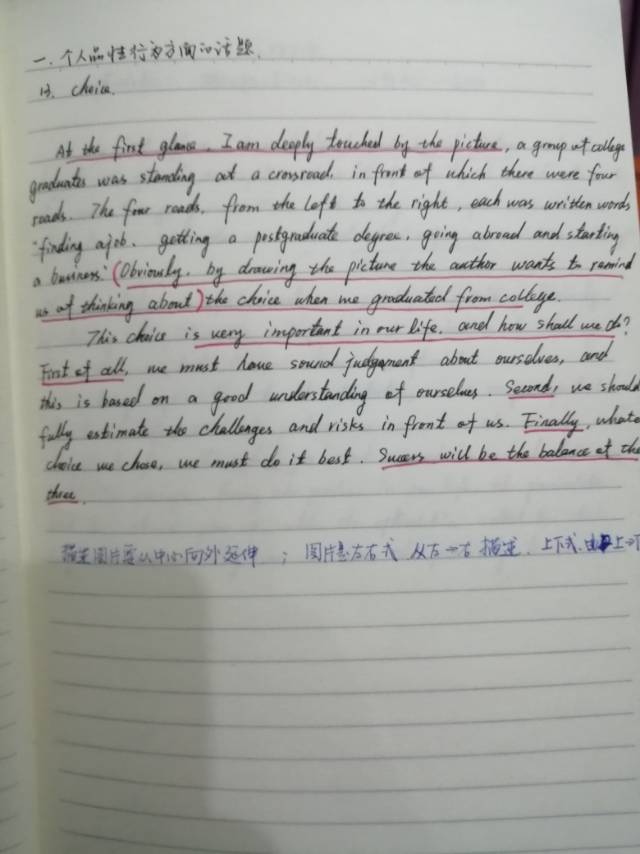 一.个人品性行为方面的话题.
13. choice.
At the first glance, I am deeply touched by the picture, a group of college
graduates was standing at a crossroad, in front of which there were four
roads. The four roads, from the left to the right, each was written words
"finding a job, getting a postgraduate degree, going abroad and starting
a business." (Obviously, by drawing the picture the author wants to remind
us of thinking about) the choice when we graduated from college.
This choice is very important in our life, and how shall we do?
First of all, we must have sound judgement about ourselves, and
this is based on a good understanding of ourselves. Second, we should
fully estimate the challenges and risks in front of us. Finally,
choice we chose, we must do it best. Success will be the balance of the
three.
描述图片要从中心向外延伸 ; 图片是左右式 从左→右 描述. 上下式.由上→下